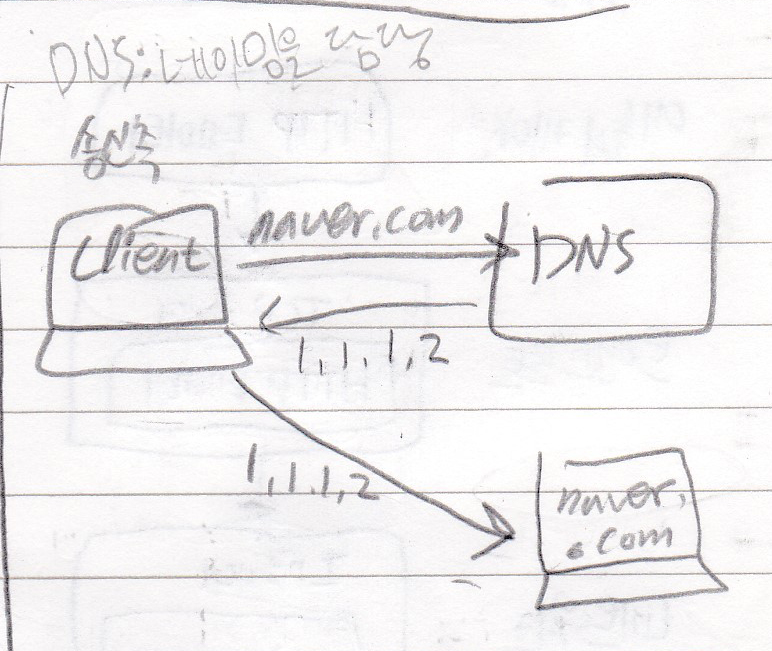 DNS: 네이밍을 담당
송신측
Client
naver.com
DNS
1.1.1.2
1.1.1.2
naver.
.com